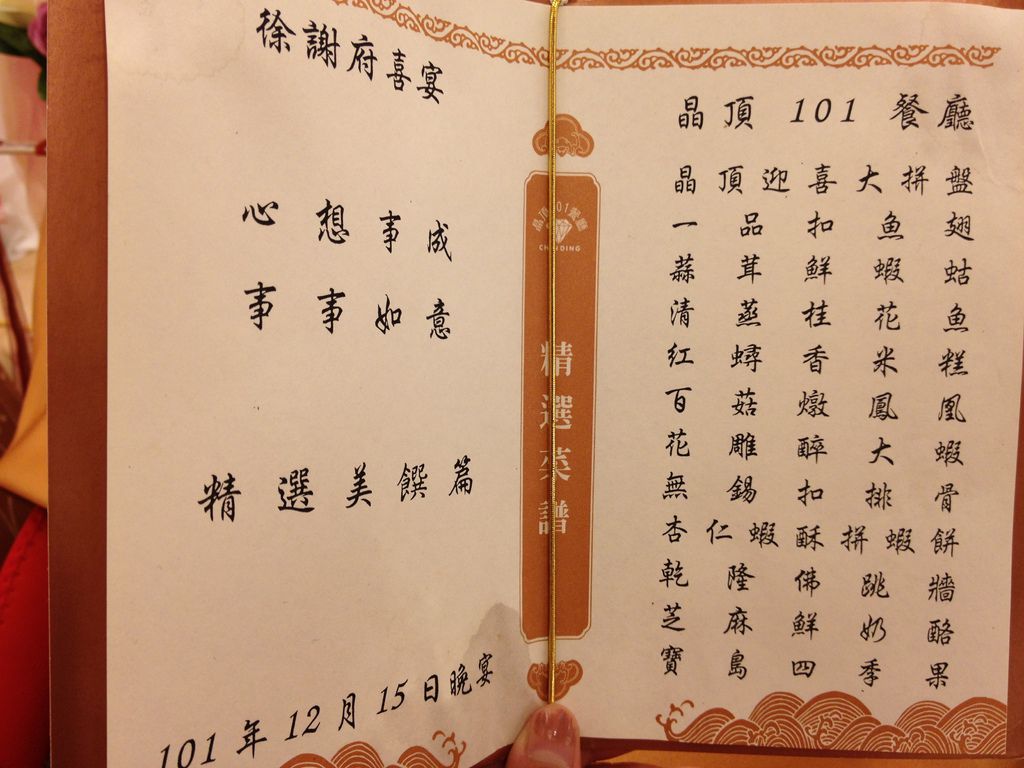 徐謝府喜宴
心想事成
事事如意
精選美饌篇
101年12月15日晚宴
晶頂101餐廳
CHINDING
精選菜譜
晶頂 101 餐廳
晶頂迎喜大拼盤
一品扣魚翅
蒜茸鮮蝦蛄
清蒸桂花魚
紅蟳香米糕
百菇燉鳳凰
花雕醉大蝦
無錫扣排骨
杏仁蝦酥拼蝦餅
乾隆佛跳牆
芝麻鮮奶酪
寶島四季果